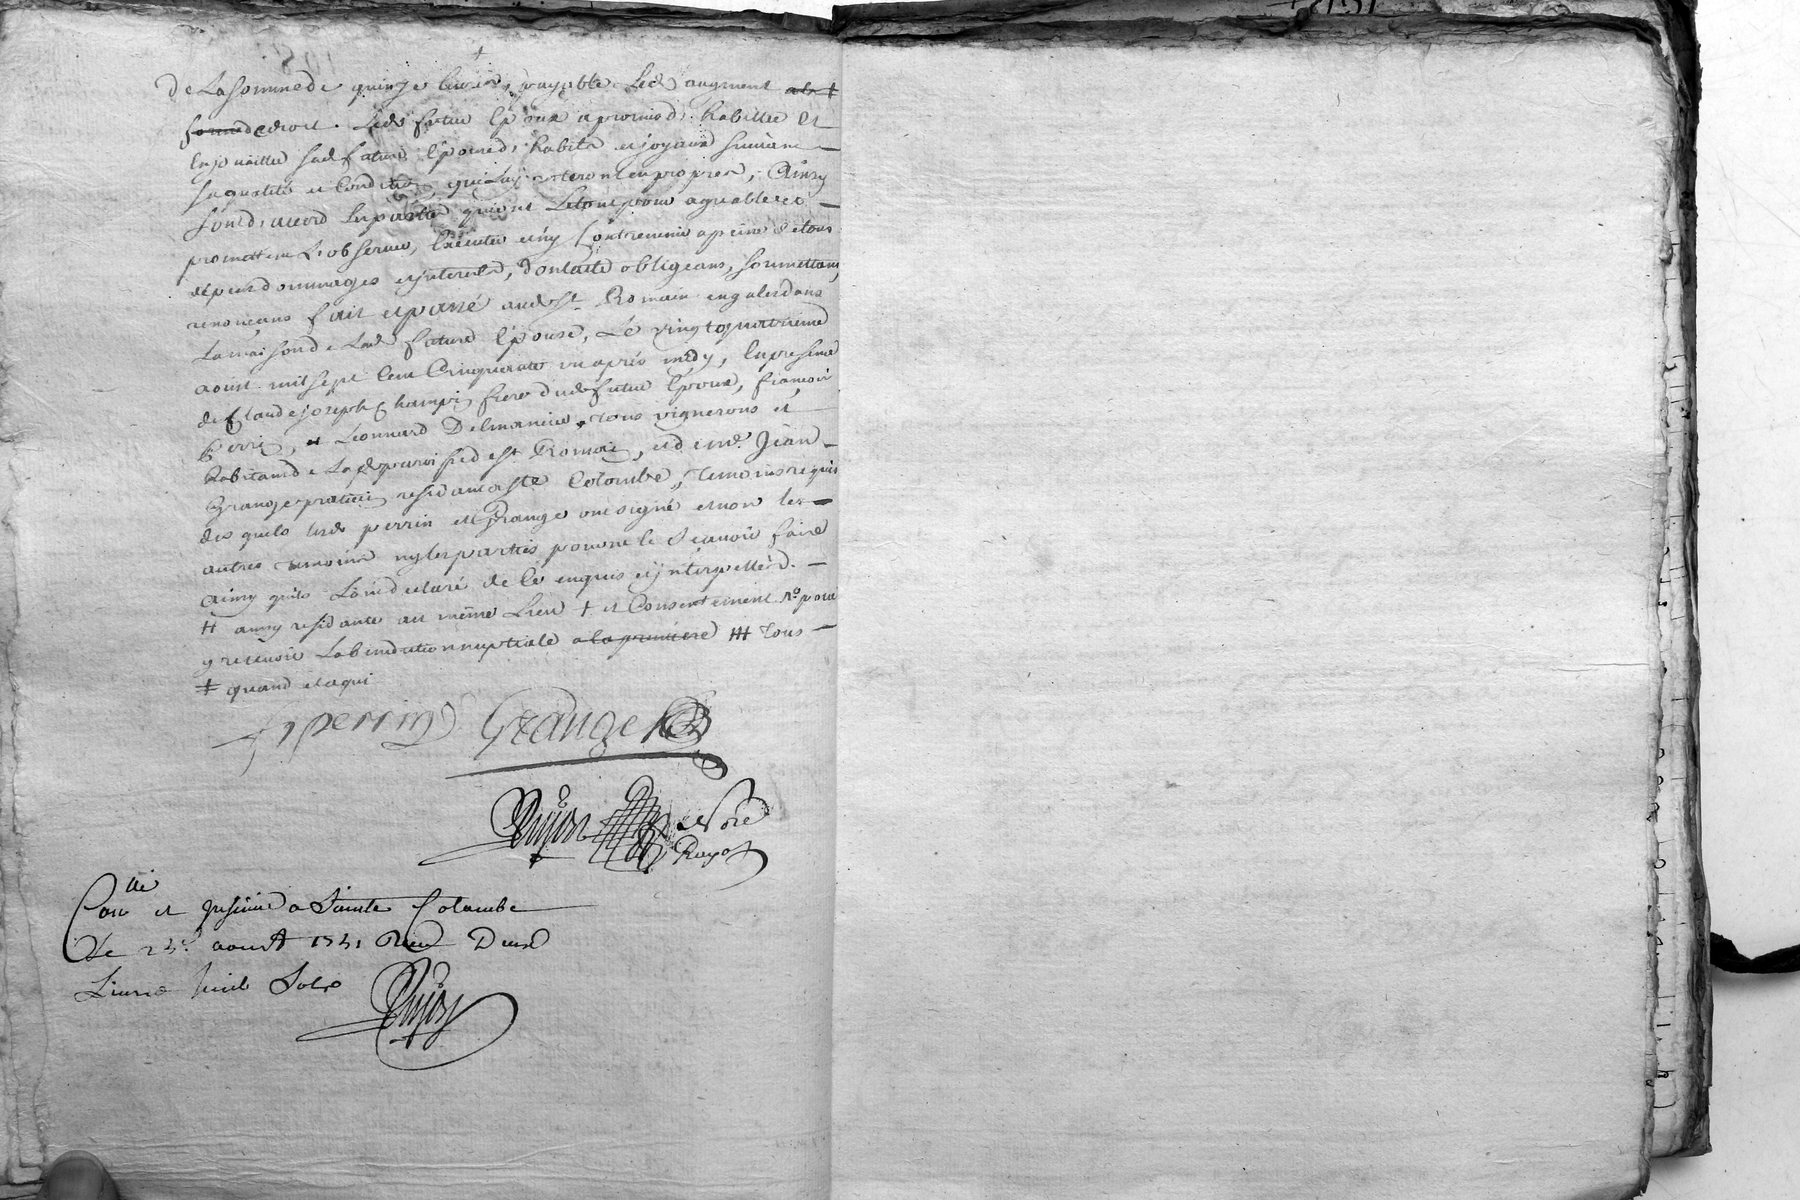 de la somme de quinze livres, payable led augment a la ‡
forme de droit. Led futur Epoux a promis d'habiller et
Enjoailler sad future Epouse d'habits et joyaux suivant
sa qualité et Condition, qui luy resteront en propres, Ainsy
sont d'accord les parties qui ont le tout pour agreable et
promettent L'observer, Executer et n'y Contrevenir a peine de tous
dépens dommages et interests, dont acte obligeans, soumettans,
renonceans fait et passé aud St Romain en gales dans
la maison de lad future Epouse, Le vingt quatrieme
aoust mil sept Cent Cinquante un après midy, En presence
de Claude joseph Champin frere dud futur Epoux, françois
perrin, et Leonnard Delmaniere tous vignerons et
habitans de lad parroisse de st Romain, et de me Jean
Grange praticien residant a ste Colombe, temoins requis
des quels lesd perrin et Grange ont signé et non les
autres temoins ny les parties pour ne le Scavoir faire
Ainsy qu'ils L'ont declaré de ce enquis et interpellés.
╫ aussy residante au même Lieu † et Consentement Ro pour
y recevoir La benediction nuptiale a la premiere ╫╫ tous
‡ quand et a qui
fr perrin Grange
Nore
Royal
Conllé et Insinué a Sainte Colombe
Le 25e aoust 1751 Recu Deux
Livres huit Sols